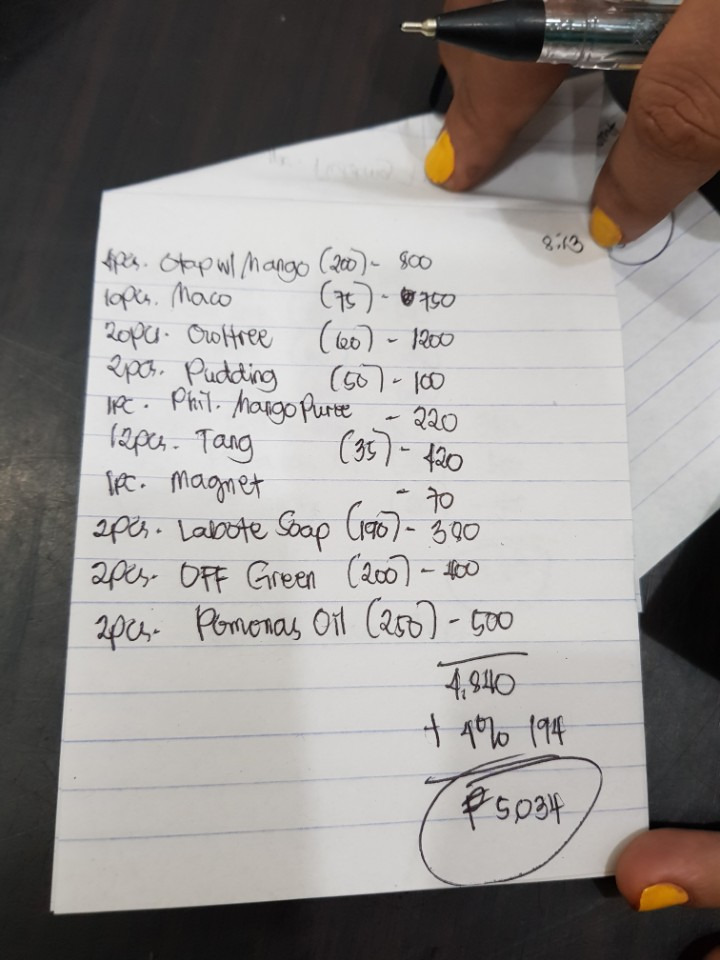 8:13
4pcs. Otap w/ Mango (200) - 800
10pcs. Maco (75) - 750
20pcs. Owltree (60) - 1200
2pcs. Pudding (50) - 100
1pc. Phil. Mango Puree - 220
12pcs. Tang (35) - 420
1pc. Magnet - 70
2pcs. Labote Soap (190) - 380
2pcs. OFF Green (200) - 400
2pcs. Pomonas Oil (250) - 500
4,840
+ 4% 194
₱ 5,034